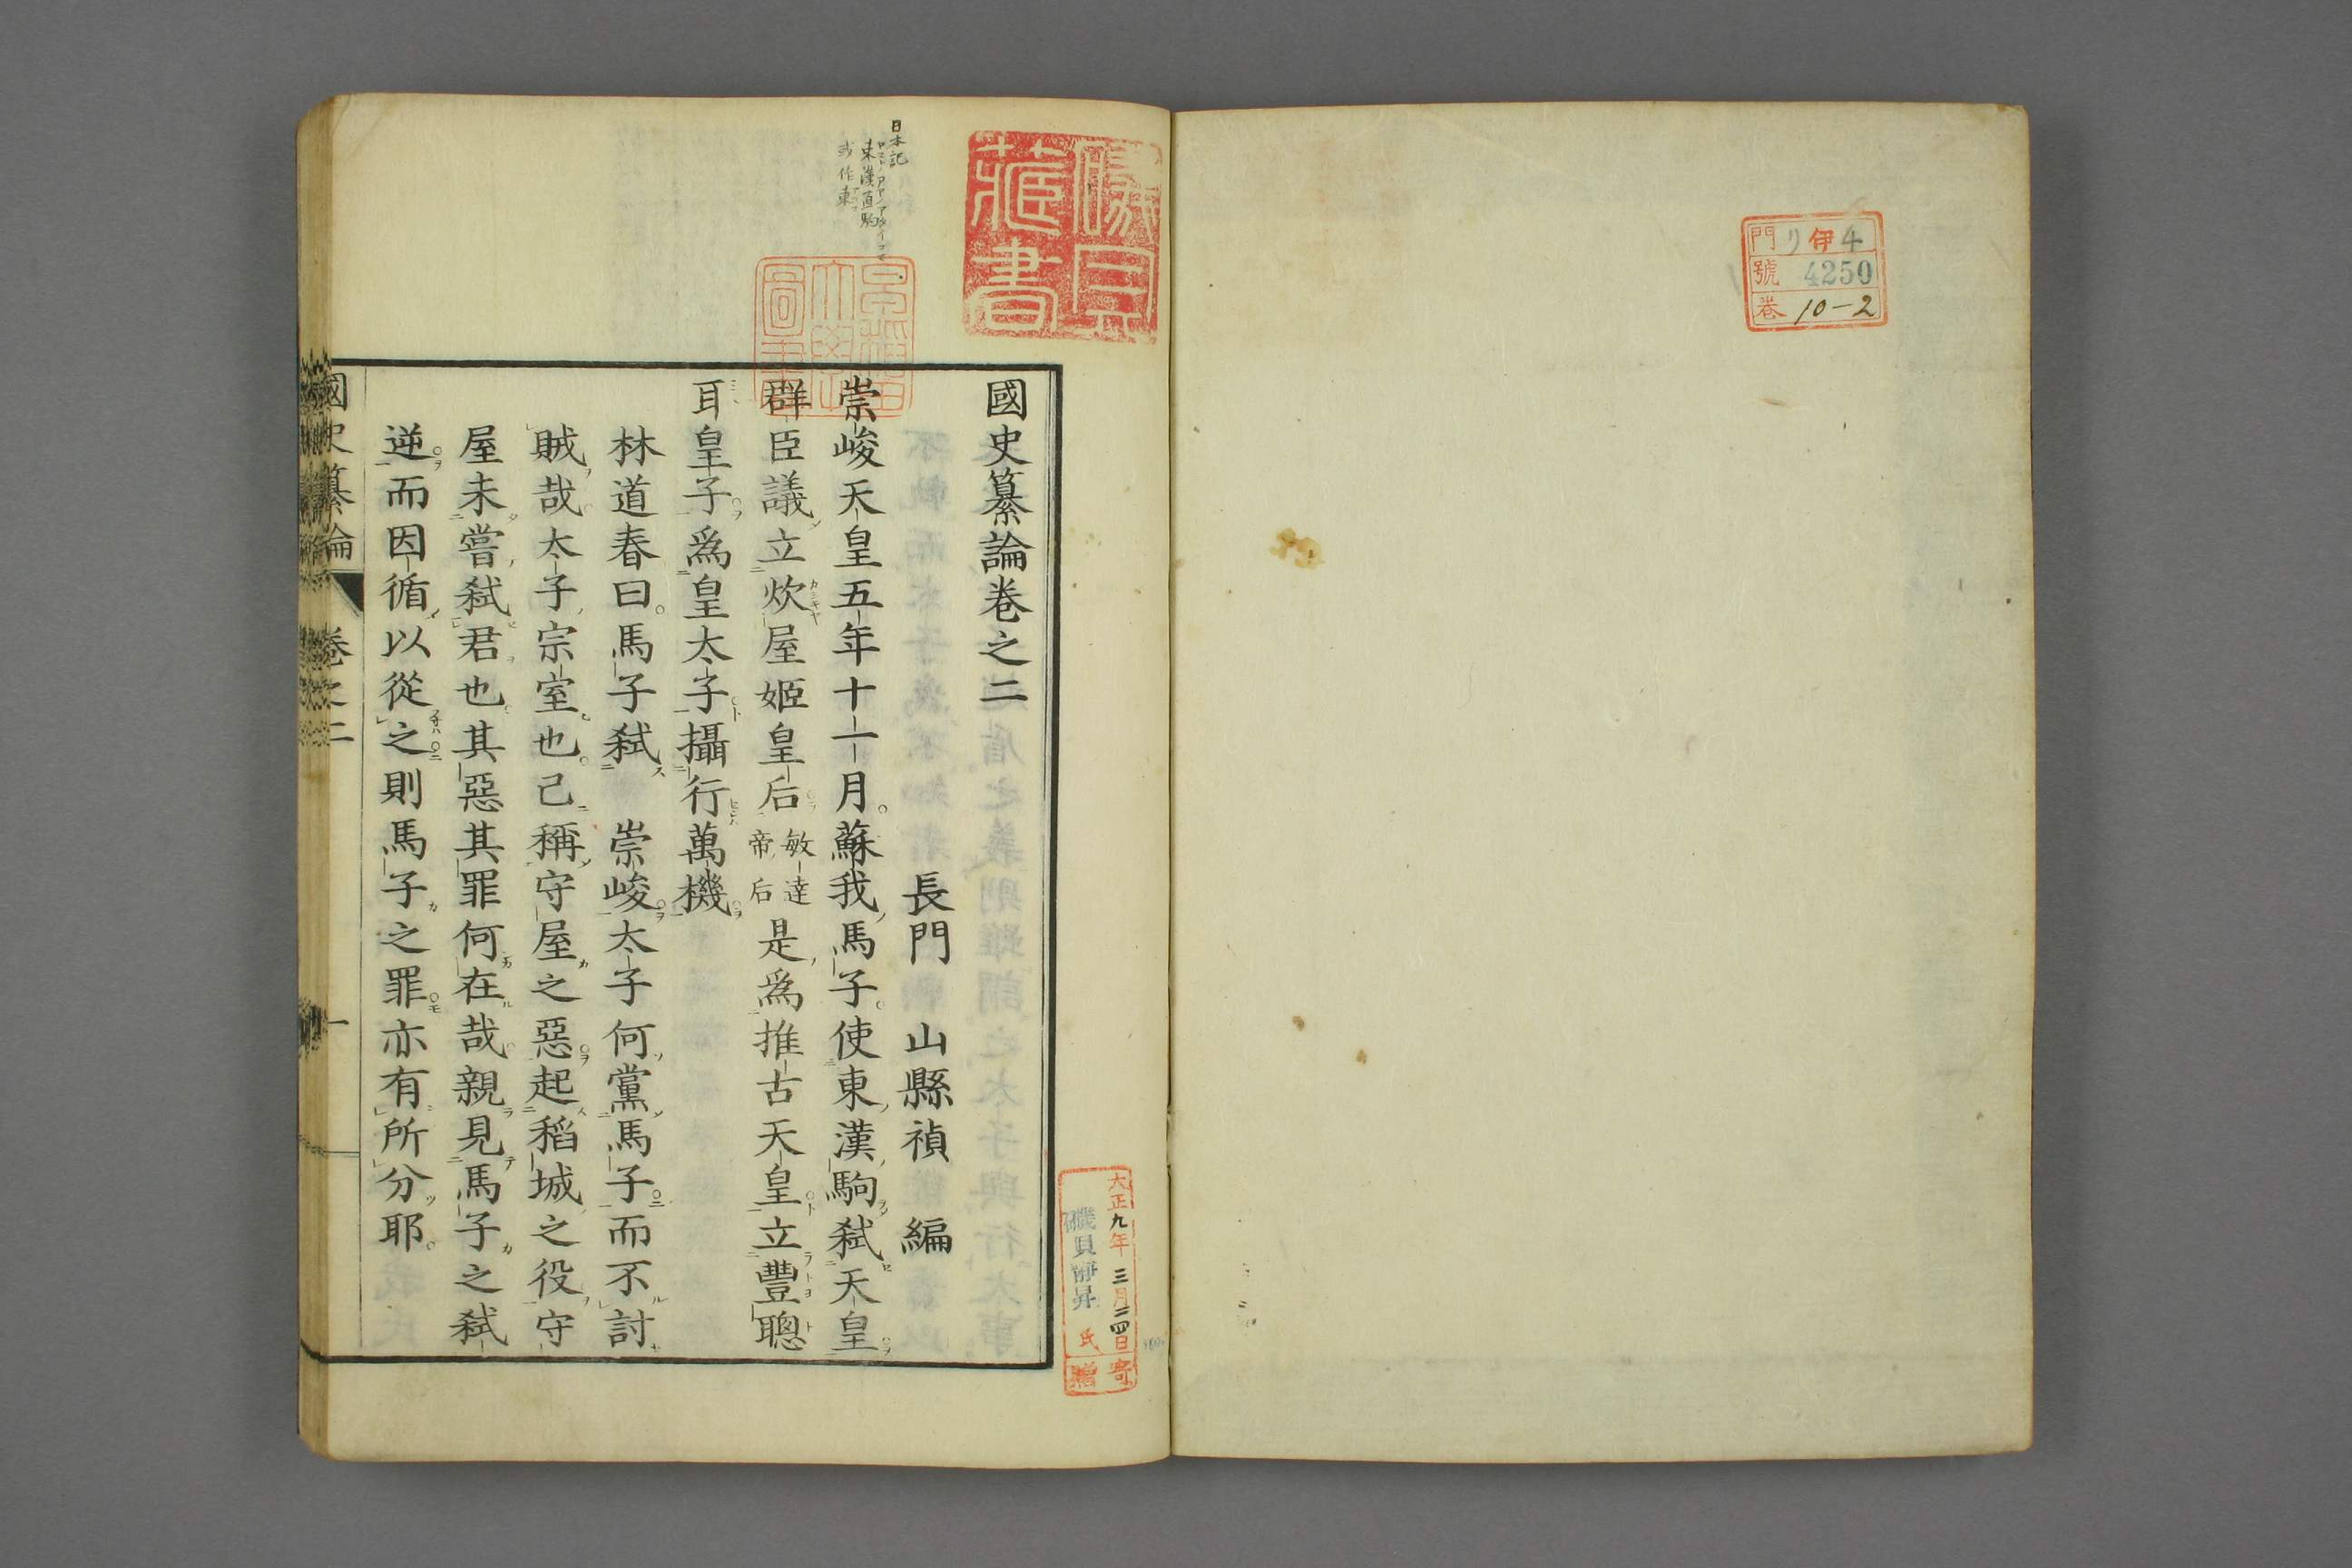 門 リ伊4
號 4250
巻 10-2
磯貝
藏書
早稲田
大學
圖書
大正九年三月二四日寄
磯貝静昇氏贈
日本記
東漢直駒
或作東
國史纂論卷之二
長門 山縣禎 編
崇峻天皇五年十一月。蘇我馬子。使東漢駒弑天皇
群臣議立炊屋姬皇后敏達帝后是爲推古天皇立豐聰
耳皇子爲皇太子攝行萬機
林道春曰。馬子弑 崇峻太子何黨馬子而不討
賊哉太子宗室也。己稱守屋之惡起稻城之役守
屋未嘗弑君也其惡其罪何在哉親見馬子之弑
逆而因循以從之則馬子之罪亦有所分耶。
國史纂論 卷之二 一